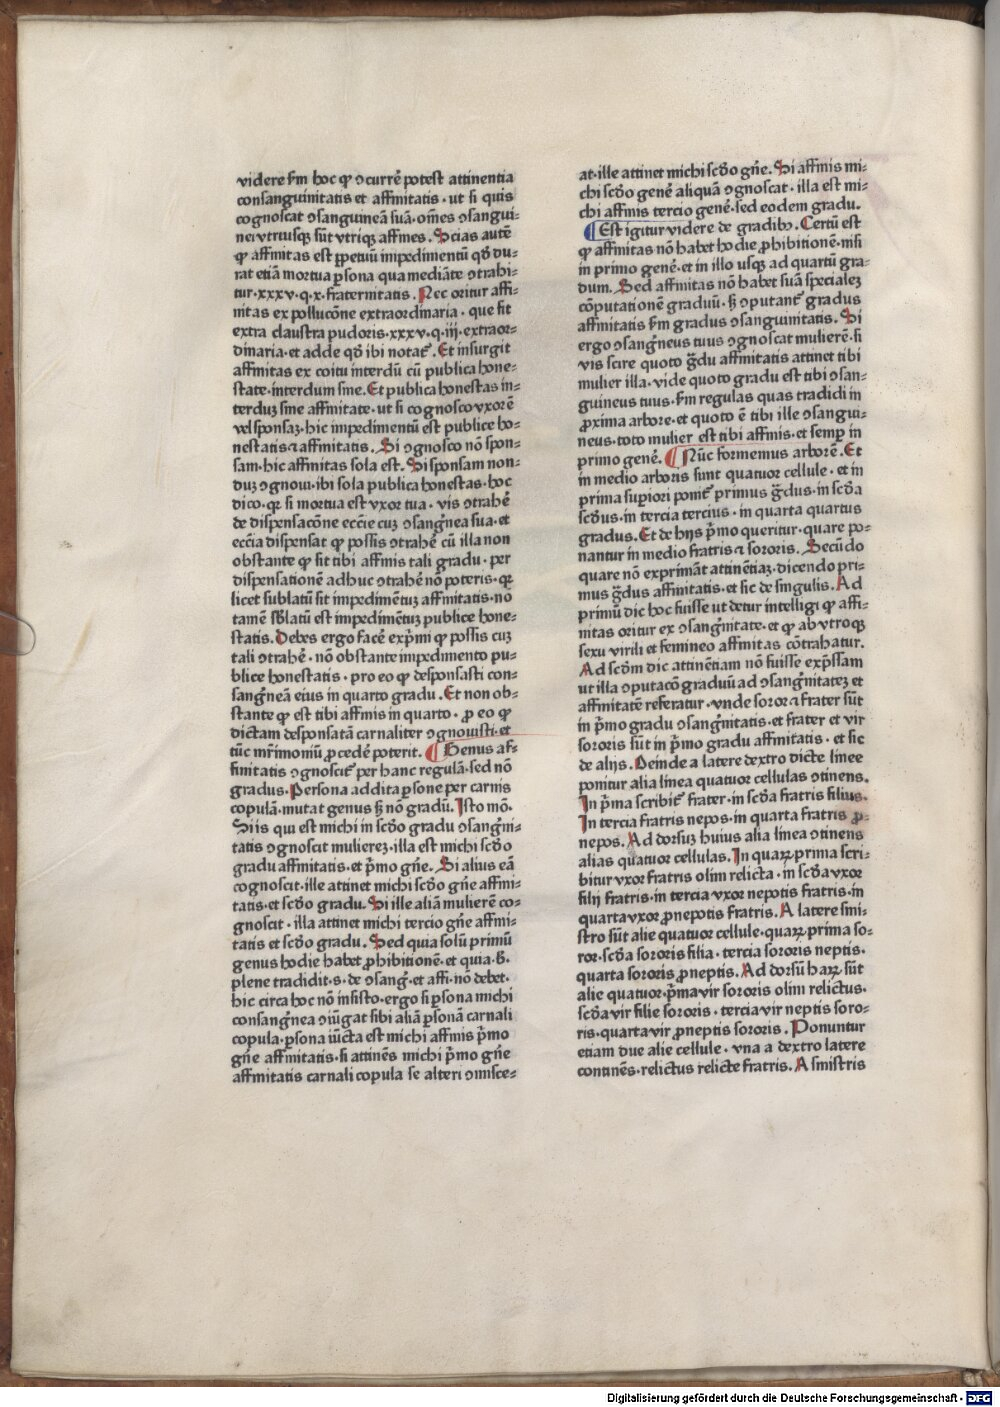 videre ẜm hoc ꝙ ꝯcurrẽ potest attinentia
consanguinitatis et affinitatis · ut si quis
cognoscat ꝯsanguineã suã · om̃es ꝯsangui⸗
nei vtriusqꝫ sũt vtriqꝫ affines . Scias autẽ
ꝙ affinitas est ꝑpetuũ impedimentũ qð du⸗
rat etiã mortua ꝑsona qua mediãte ꝯtrahi⸗
tur · xxxv · q · x · fraternitatis . Nec oritur affi⸗
nitas ex pollucõne extraordinaria · que fit
extra claustra pudoris · xxxv · q · iij · extraor⸗
dinaria · et adde qð ibi notat̃ . Et insurgit
affinitas ex coitu interdũ cũ publica hone⸗
state · interdum sine . Et publica honestas in⸗
terduꝫ sine affinitate · ut si cognosco vxorẽ
vel sponsaꝫ · hic impedimentũ est publice ho⸗
nestatis ⁊ affinitatis . Si ꝯgnosco nõ spon⸗
sam · hic affinitas sola est . Si sponsam non⸗
duꝫ ꝯgnoui · ibi sola publica honestas · hoc
dico · qꝛ si mortua est vxor tua · vis ꝯtrahẽ
de dispensacõne ecc̃ie cuꝫ ꝯsang̃nea sua · et
ecc̃ia dispensat ꝙ possis ꝯtrahẽ cũ illa non
obstante ꝙ sit tibi affinis tali gradu · per
dispensationẽ adhuc ꝯtrahẽ nõ poteris · qꝛ
licet sublatũ sit impedimẽtuꝫ affinitatis · nõ
tamẽ sb̃latũ est impedimẽtuꝫ publice hone⸗
statis . Debes ergo facẽ exp̃mi ꝙ possis cuꝫ
tali ꝯtrahẽ · nõ obstante impedimento pu⸗
blice honestatis · pro eo ꝙ desponsasti con⸗
sang̃neã eius in quarto gradu . Et non ob⸗
stante ꝙ est tibi affinis in quarto · ꝓ eo ꝙ
dictam desponsatã carnaliter ꝯgnouisti · et
tũc mr̃imoniũ ꝓcedẽ poterit . ¶ Genus af⸗
finitatis ꝯgnoscit̃ per hanc regulã · sed nõ
gradus . Persona addita ꝑsone per carnis
copulã · mutat genus sꝫ nõ gradũ . Isto mõ .
Si is qui est michi in scðo gradu ꝯsang̃ni⸗
tatis ꝯgnoscit muliereꝫ · illa est michi scðo
gradu affinitatis · et p̃mo gñe . Si alius eã
cognoscit · ille attinet michi scðo gñe affini⸗
tatis · et scðo gradu . Si ille aliã mulierẽ co⸗
gnoscit · illa attinet michi tercio gñe affini⸗
tatis et scðo gradu . Sed quia solũ primũ
genus hodie habet ꝓhibitionẽ · et quia · B̃ .
plene tradidit · s · de ꝯsang̃ · et affi · nõ debet ·
hic circa hoc nõ insisto · ergo si ꝑsona michi
consang̃nea ꝯiũgat sibi aliã ꝑsonã carnali
copula · ꝑsona iũcta est michi affinis p̃mo
gñe affinitatis · si attinẽs michi p̃mo gñe
affinitatis carnali copula se alteri ꝯmisce⸗
at · ille attinet michi scðo gñe . Si affinis mi⸗
chi scðo genẽ aliquã ꝯgnoscat · illa est mi⸗
chi affinis tercio genẽ · sed eodem gradu .
¶ Est igitur videre de gradibꝰ . Certũ est
ꝙ affinitas nõ habet hodie ꝓhibitionẽ · nisi
in primo genẽ · et in illo usqꝫ ad quartũ gra⸗
dum . Sed affinitas nõ habet suã specialeꝫ
cõputationẽ graduũ · sꝫ ꝯputant̃ gradus
affinitatis ẜm gradus ꝯsanguinitatis . Si
ergo ꝯsang̃neus tuus ꝯgnoscat mulierẽ · si
vis scire quoto g̃du affinitatis attinet tibi
mulier illa · vide quoto gradu est tibi ꝯsan⸗
guineus tuus · ẜm regulas quas tradidi in
ꝓxima arbore · et quoto ẽ tibi ille ꝯsangui⸗
neus · toto mulier est tibi affinis · et semꝑ in
primo genẽ . ¶ Nũc formemus arborẽ . Et
in medio arboris sunt quatuor cellule · et in
prima suꝑiori ponit̃ primus g̃dus · in scða
scðus · in tercia tercius · in quarta quartus
gradus . Et de hijs p̃mo queritur · quare po⸗
nantur in medio fratris ⁊ sororis . Secũdo
quare nõ exprimãt attinẽtiaꝫ · dicendo pri⸗
mus g̃dus affinitatis · et sic de singulis . Ad
primũ dic hoc fuisse ut detur intelligi ꝙ affi⸗
nitas oritur ex ꝯsang̃nitate · et ꝙ ab vtroqꝫ
sexu virili et femineo affinitas cõtrahatur .
Ad scðm dic attinẽtiam nõ fuisse exp̃ssam
ut illa ꝯputacõ graduũ ad ꝯsang̃nitateꝫ et
affinitatẽ referatur · vnde soror ⁊ frater sũt
in p̃mo gradu ꝯsang̃nitatis · et frater et vir
sororis sũt in p̃mo gradu affinitatis · et sic
de alijs . Deinde a latere dextro dicte linee
ponitur alia linea quatuor cellulas ꝯtinens .
In p̃ma scribit̃ frater · in scða fratris filius .
In tercia fratris nepos · in quarta fratris ꝓ⸗
nepos . Ad dorsuꝫ huius alia linea ꝯtinens
alias quatuor cellulas . In quaꝝ prima scri⸗
bitur vxor fratris olim relicta · in scða vxor
filij fratris · in tercia vxor nepotis fratris · in
quarta vxor ꝓnepotis fratris . A latere sini⸗
stro sũt alie quatuor cellule · quaꝝ prima so⸗
ror · scða sororis filia · tercia sororis neptis ·
quarta sororis ꝓneptis . Ad dorsũ haꝝ sũt
alie quatuor · p̃ma vir sororis olim relictus ·
scða vir filie sororis · tercia vir neptis soro⸗
ris · quarta vir ꝓneptis sororis . Ponuntur
etiam due alie cellule · vna a dextro latere
continẽs · relictus relicte fratris . A sinistris
Digitalisierung gefördert durch die Deutsche Forschungsgemeinschaft - DFG